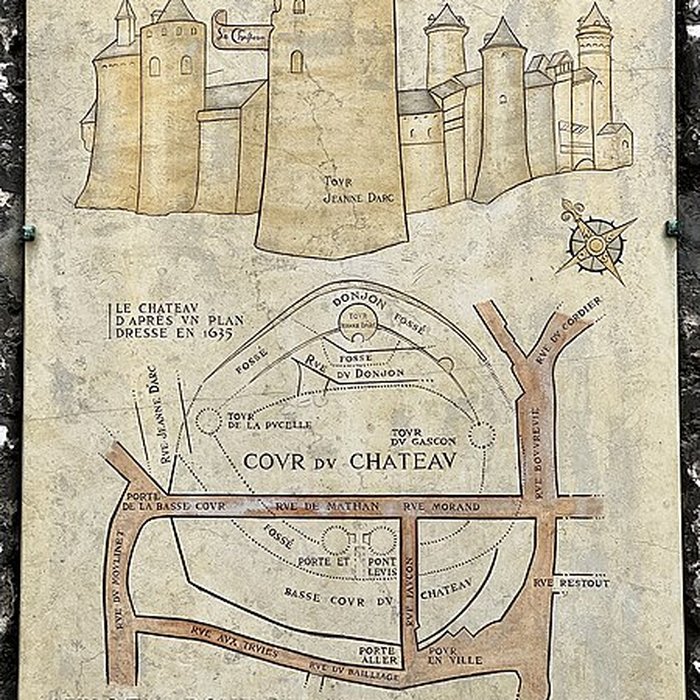 TOVR
JEANNE DARC
LE CHATEAV
D'APRÈS VN PLAN
DRESSE EN 1635
DONJON
TOVR
JEANNE DARC
FOSSÉ
FOSSÉ
FOSSE
RVE DV DONJON
RVE DV CORDIER
RVE JEANNE DARC
TOVR
DE LA PVCELLE
TOVR
DV GASCON
RVE BOVVREVIL
COVR DV CHATEAV
PORTE
DE LA BASSE COVR
RVE DE MATHAN
RVE MORAND
FOSSÉ
PORTE ET
PONT
LEVIS
RVE FAVCON
RVE DV MOVLINET
BASSE COVR DV CHATEAV
RVE RESTOUT
RVE AUX
RVE DV BAILLIAGE
PORTE
ALLER
POVR
EN VILLE